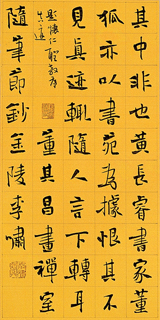 其中非也黄長睿書家董
狐亦以書苑為據恨其不
見真迹輒隨人言下轉耳
董其昌畫禪室
隨筆節鈔金陵李嘯